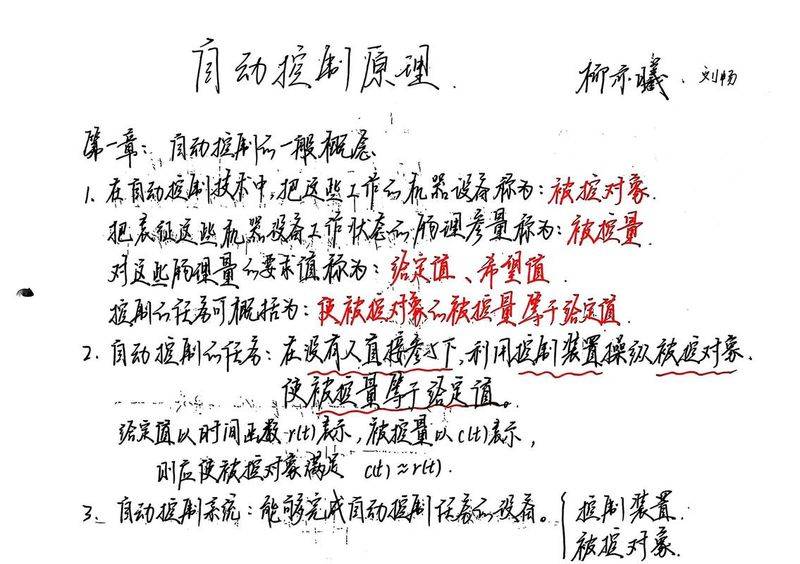 自动控制原理.
柳亦曦、刘畅
第一章：自动控制的一般概念
1. 在自动控制技术中,把这些工作的机器设备称为：被控对象.
把表征这些机器设备工作状态的物理参量称为：被控量.
对这些物理量的要求值称为：给定值、希望值.
控制的任务可概括为：使被控对象的被控量等于给定值.
2. 自动控制的任务：在没有人直接参与下,利用控制装置操纵被控对象.
使被控量等于给定值。
给定值以时间函数r(t)表示,被控量以c(t)表示,
则应使被控对象满足 c(t)≈r(t).
3、自动控制系统：能够完成自动控制任务的设备。{控制装置.
被控对象.